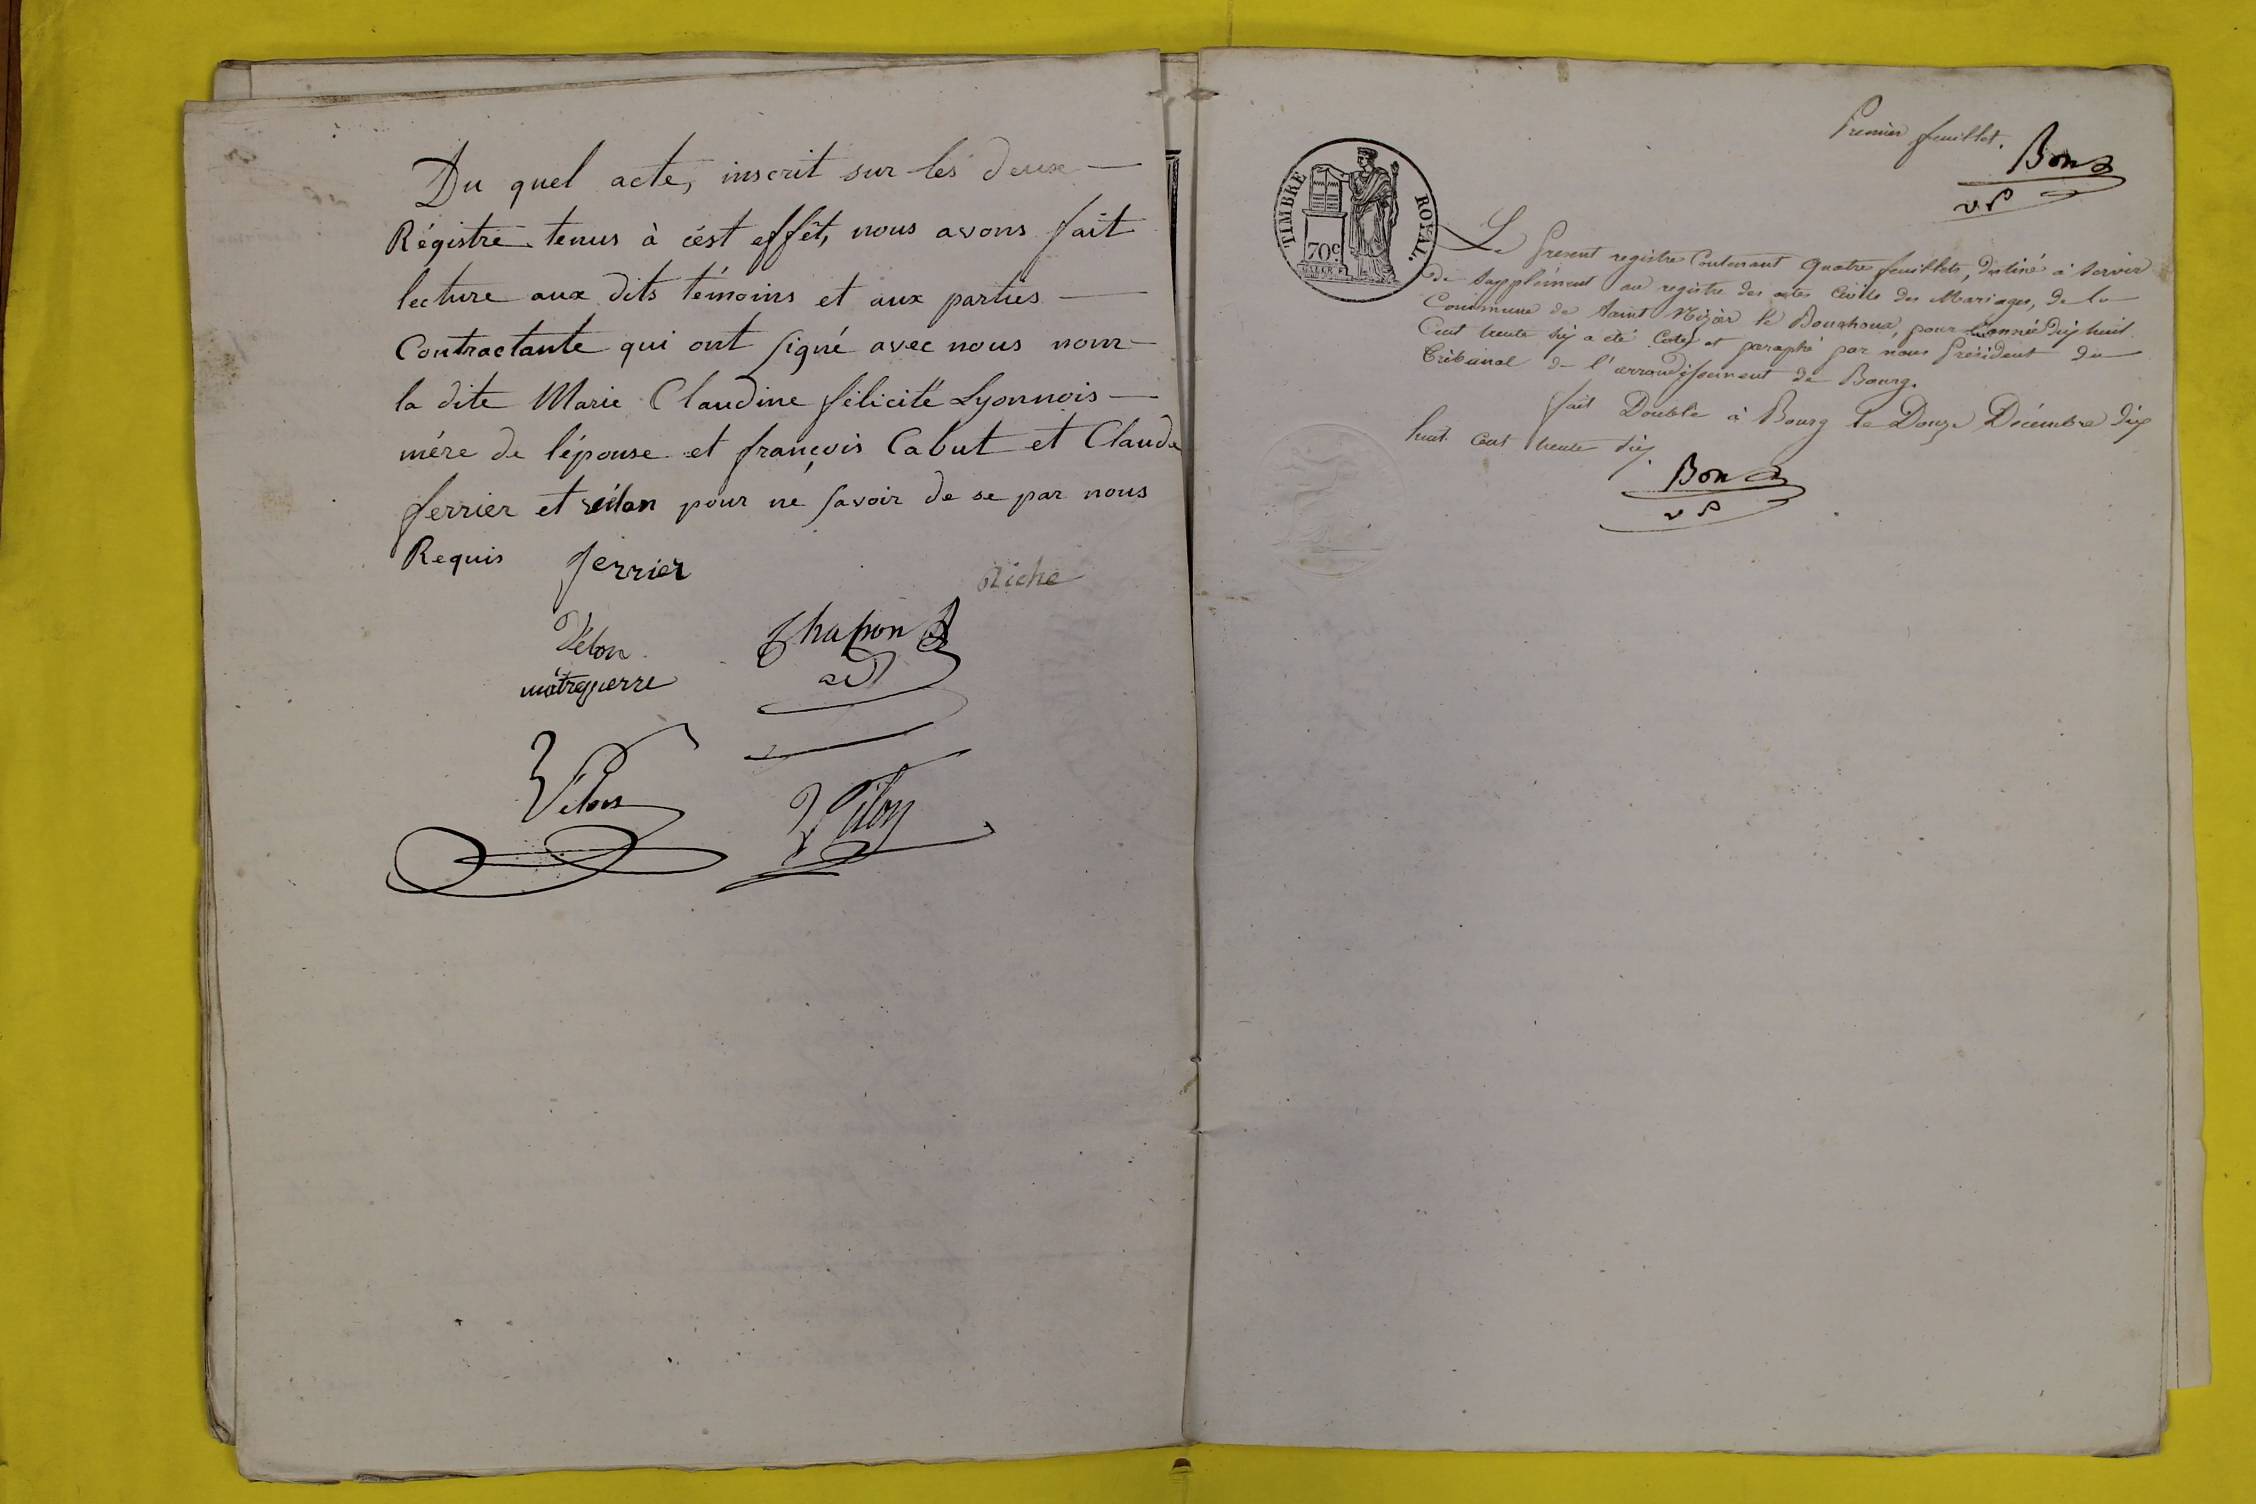 Du quel acte, inscrit sur les deux
Régistre tenus à cést effêt, nous avons fait
lecture aux dits témoins et aux parties
Contractante qui ont signé avec nous nom
la dite Marie Claudine félicité Lyonnois
mére de l'épouse et françois Cabut et Claude
ferrier et vélon pour ne savoir de se par nous
Requis ferrier
Riche
Vélon
Chapon
Vélon
Vélon
Premier feuillet.
Bon
vP
TIMBRE ROYAL.
70c
Le présent registre Contenant quatre feuillets, destiné à servir
de supplément au registre des actes Civils des Mariages, de la
Commune de Saint Nizier le Bouchoux, pour l'année dix huit
Cent trente six a été Coté et paraphé par nous Président du
Tribunal de l'arrondissement de Bourg.
fait Double à Bourg le Douze Décembre dix
huit cent trente six.
Bon
vP